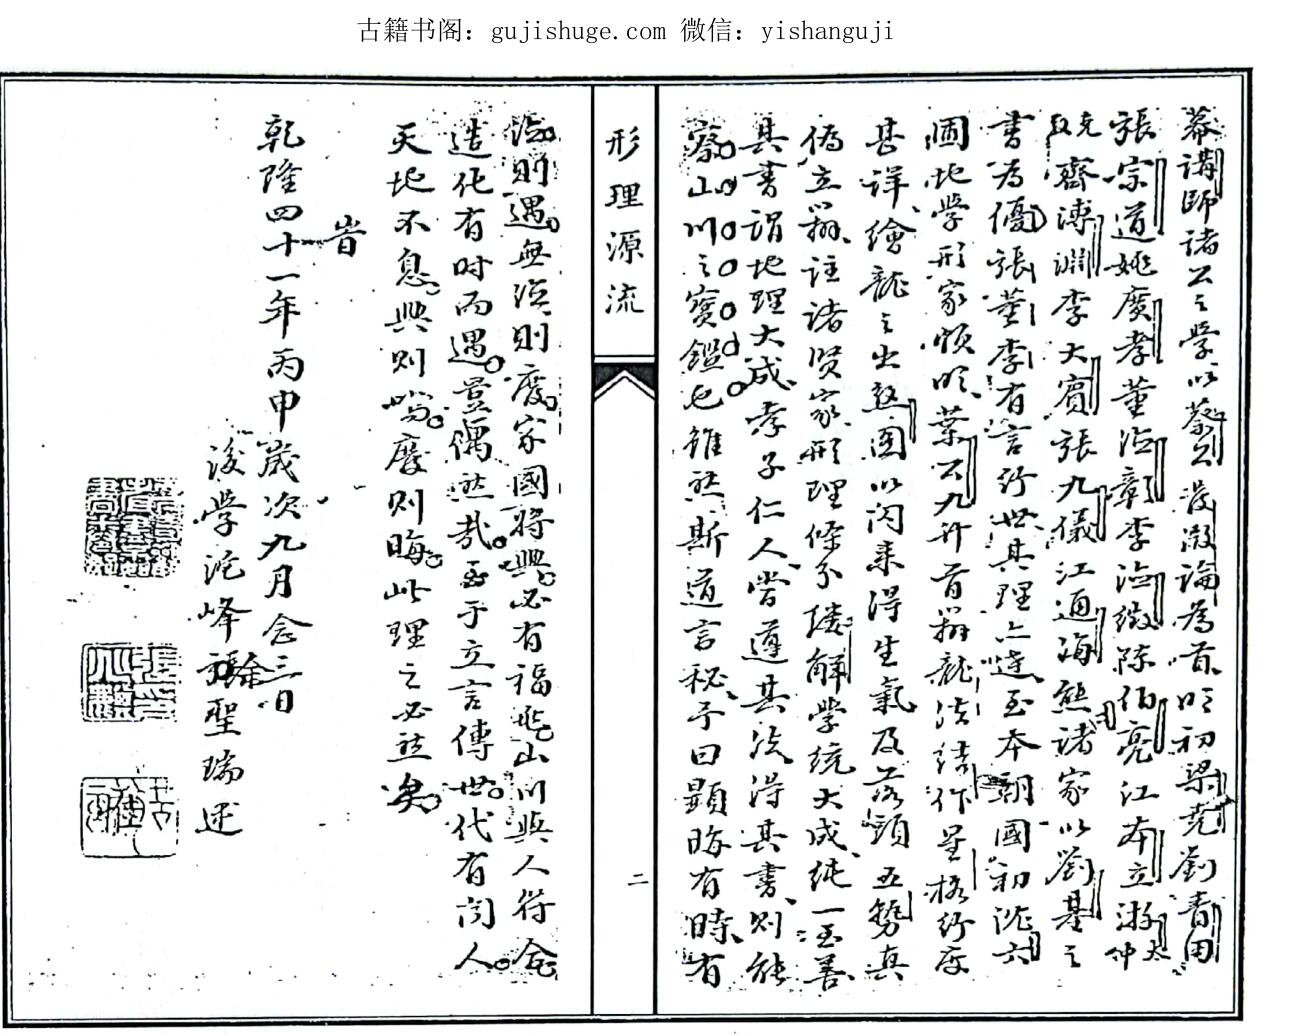 古籍书阁：gujishuge.com 微信：yishanguji
幕講師諸公之學以蔡公發微論為首明初梁堯劉青田
張宗道姚廣孝董德彰李德徵陈伯亮江本立游太仲
齋溥淵李大賓張九儀江通海熊諸家以劉基之
書為優張董李有言行世其理亦達至本朝國初沈六
圃地學形家頗明葉公九升首辨龍法結作星格行度
甚详繪龍之出怒圖以闪来得生氣及落頭五勢真
偽立辨註诸贤家形理條分缕解學統大成純一至善
其書謂地理大成孝子仁人當遵其法得其書則能
察山川之寶鑑也雖然斯道言秘予曰顯晦有時有
德則遇無德則廢家國将興必有福兆山川與人符合
造化有时而遇豈偶然哉至于立言傳世代有闻人
天地不息興則 廢則晦此理之必然矣
旹
乾隆四十一年丙申歲次九月念三日
後學沱峰 徐聖瑞述
形理源流
二